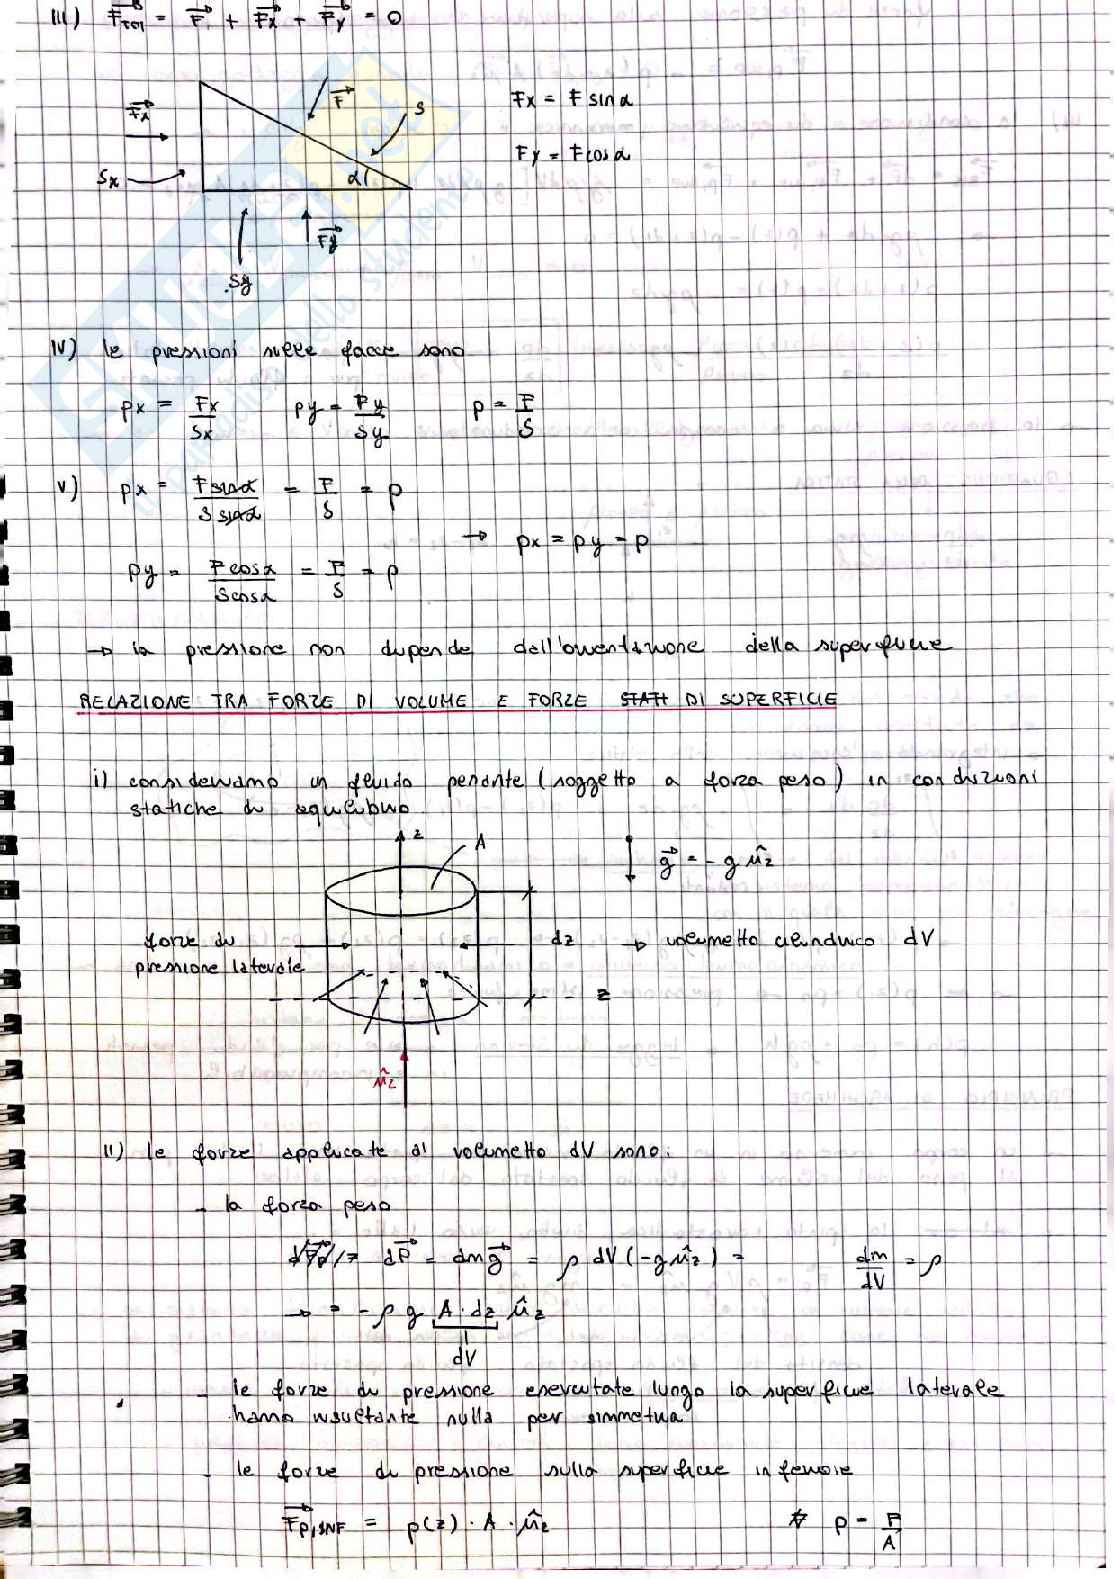 III) F⃗TOT = F⃗ + F⃗x + F⃗y = 0
F⃗x
F⃗
S
Sx
α
F⃗y
Sy
Fx = F sinα
Fy = F cosα
IV) le pressioni sulle facce sono
px = Fx/Sx py = Fy/Sy p = F/S
V) px = F sinα / S sinα = F/S = p
→ px = py = p
py = F cosα / S cosα = F/S = p
→ la pressione non dipende dell'orientazione della superficie
RELAZIONE TRA FORZE DI VOLUME E FORZE STATI DI SUPERFICIE
i) consideriamo un fluido pesante (soggetto a forza peso) in condizioni
statiche di equilibrio
z
A
g⃗ = - g ûz
forze di
pressione laterale
dz → volumetto cilindrico dV
z
ûz
II) le forze applicate al volumetto dV sono:
- la forza peso
dP⃗ = dm g⃗ = ρ dV (- g ûz) = dm/dV = ρ
→ = - ρ g A · dz ûz
dV
- le forze di pressione esercitate lungo la superficie laterale
hanno risultante nulla per simmetria
- le forze di pressione sulla superficie inferiore
F⃗p,INF = p(z) · A · ûz p = F/A